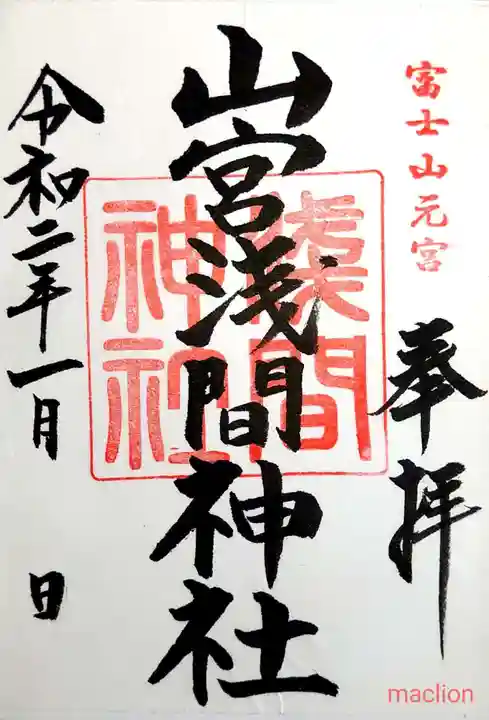 富士山元宮
奉拝
山宮浅間神社
浅間
神社
令和二年一月 日
maclion